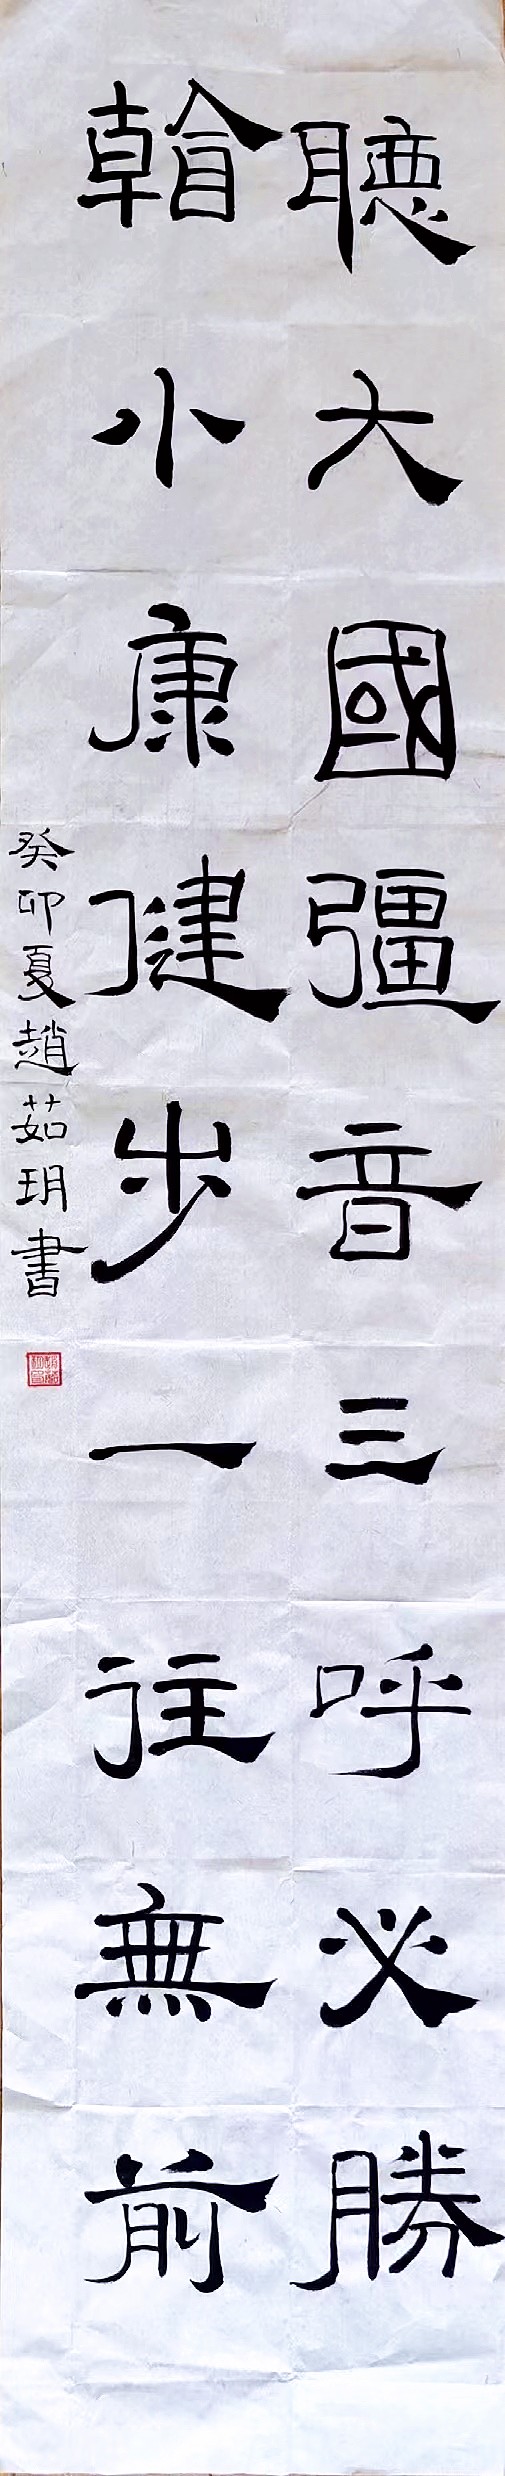 聽大國彊音三呼必勝
小康健步一往無前
癸卯夏趙茹玥書